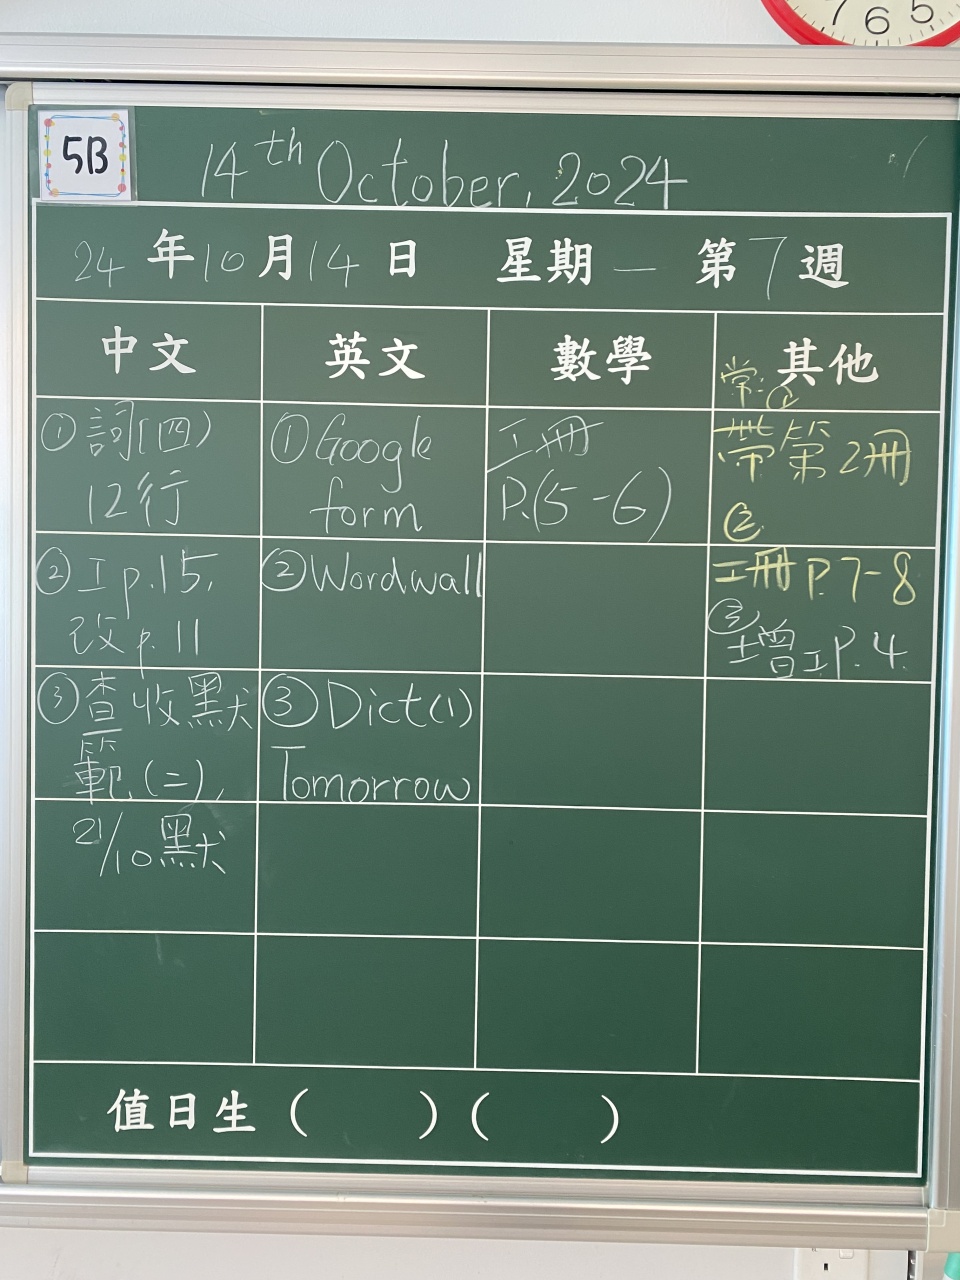 7 6 5
5B
14th October, 2024
24 年 10 月 14 日 星期 一 第 7 週
中文 英文 數學 其他
常:①
①詞(四)
12行
①Google
form
工冊
P.(5-6)
帶第2冊
②
②工p.15,
改p.11
②Wordwall
工冊P.7-8
③
增工P.4.
③查收默
範(二),
③Dict(1)
Tomorrow
21/10默
值日生( )( )